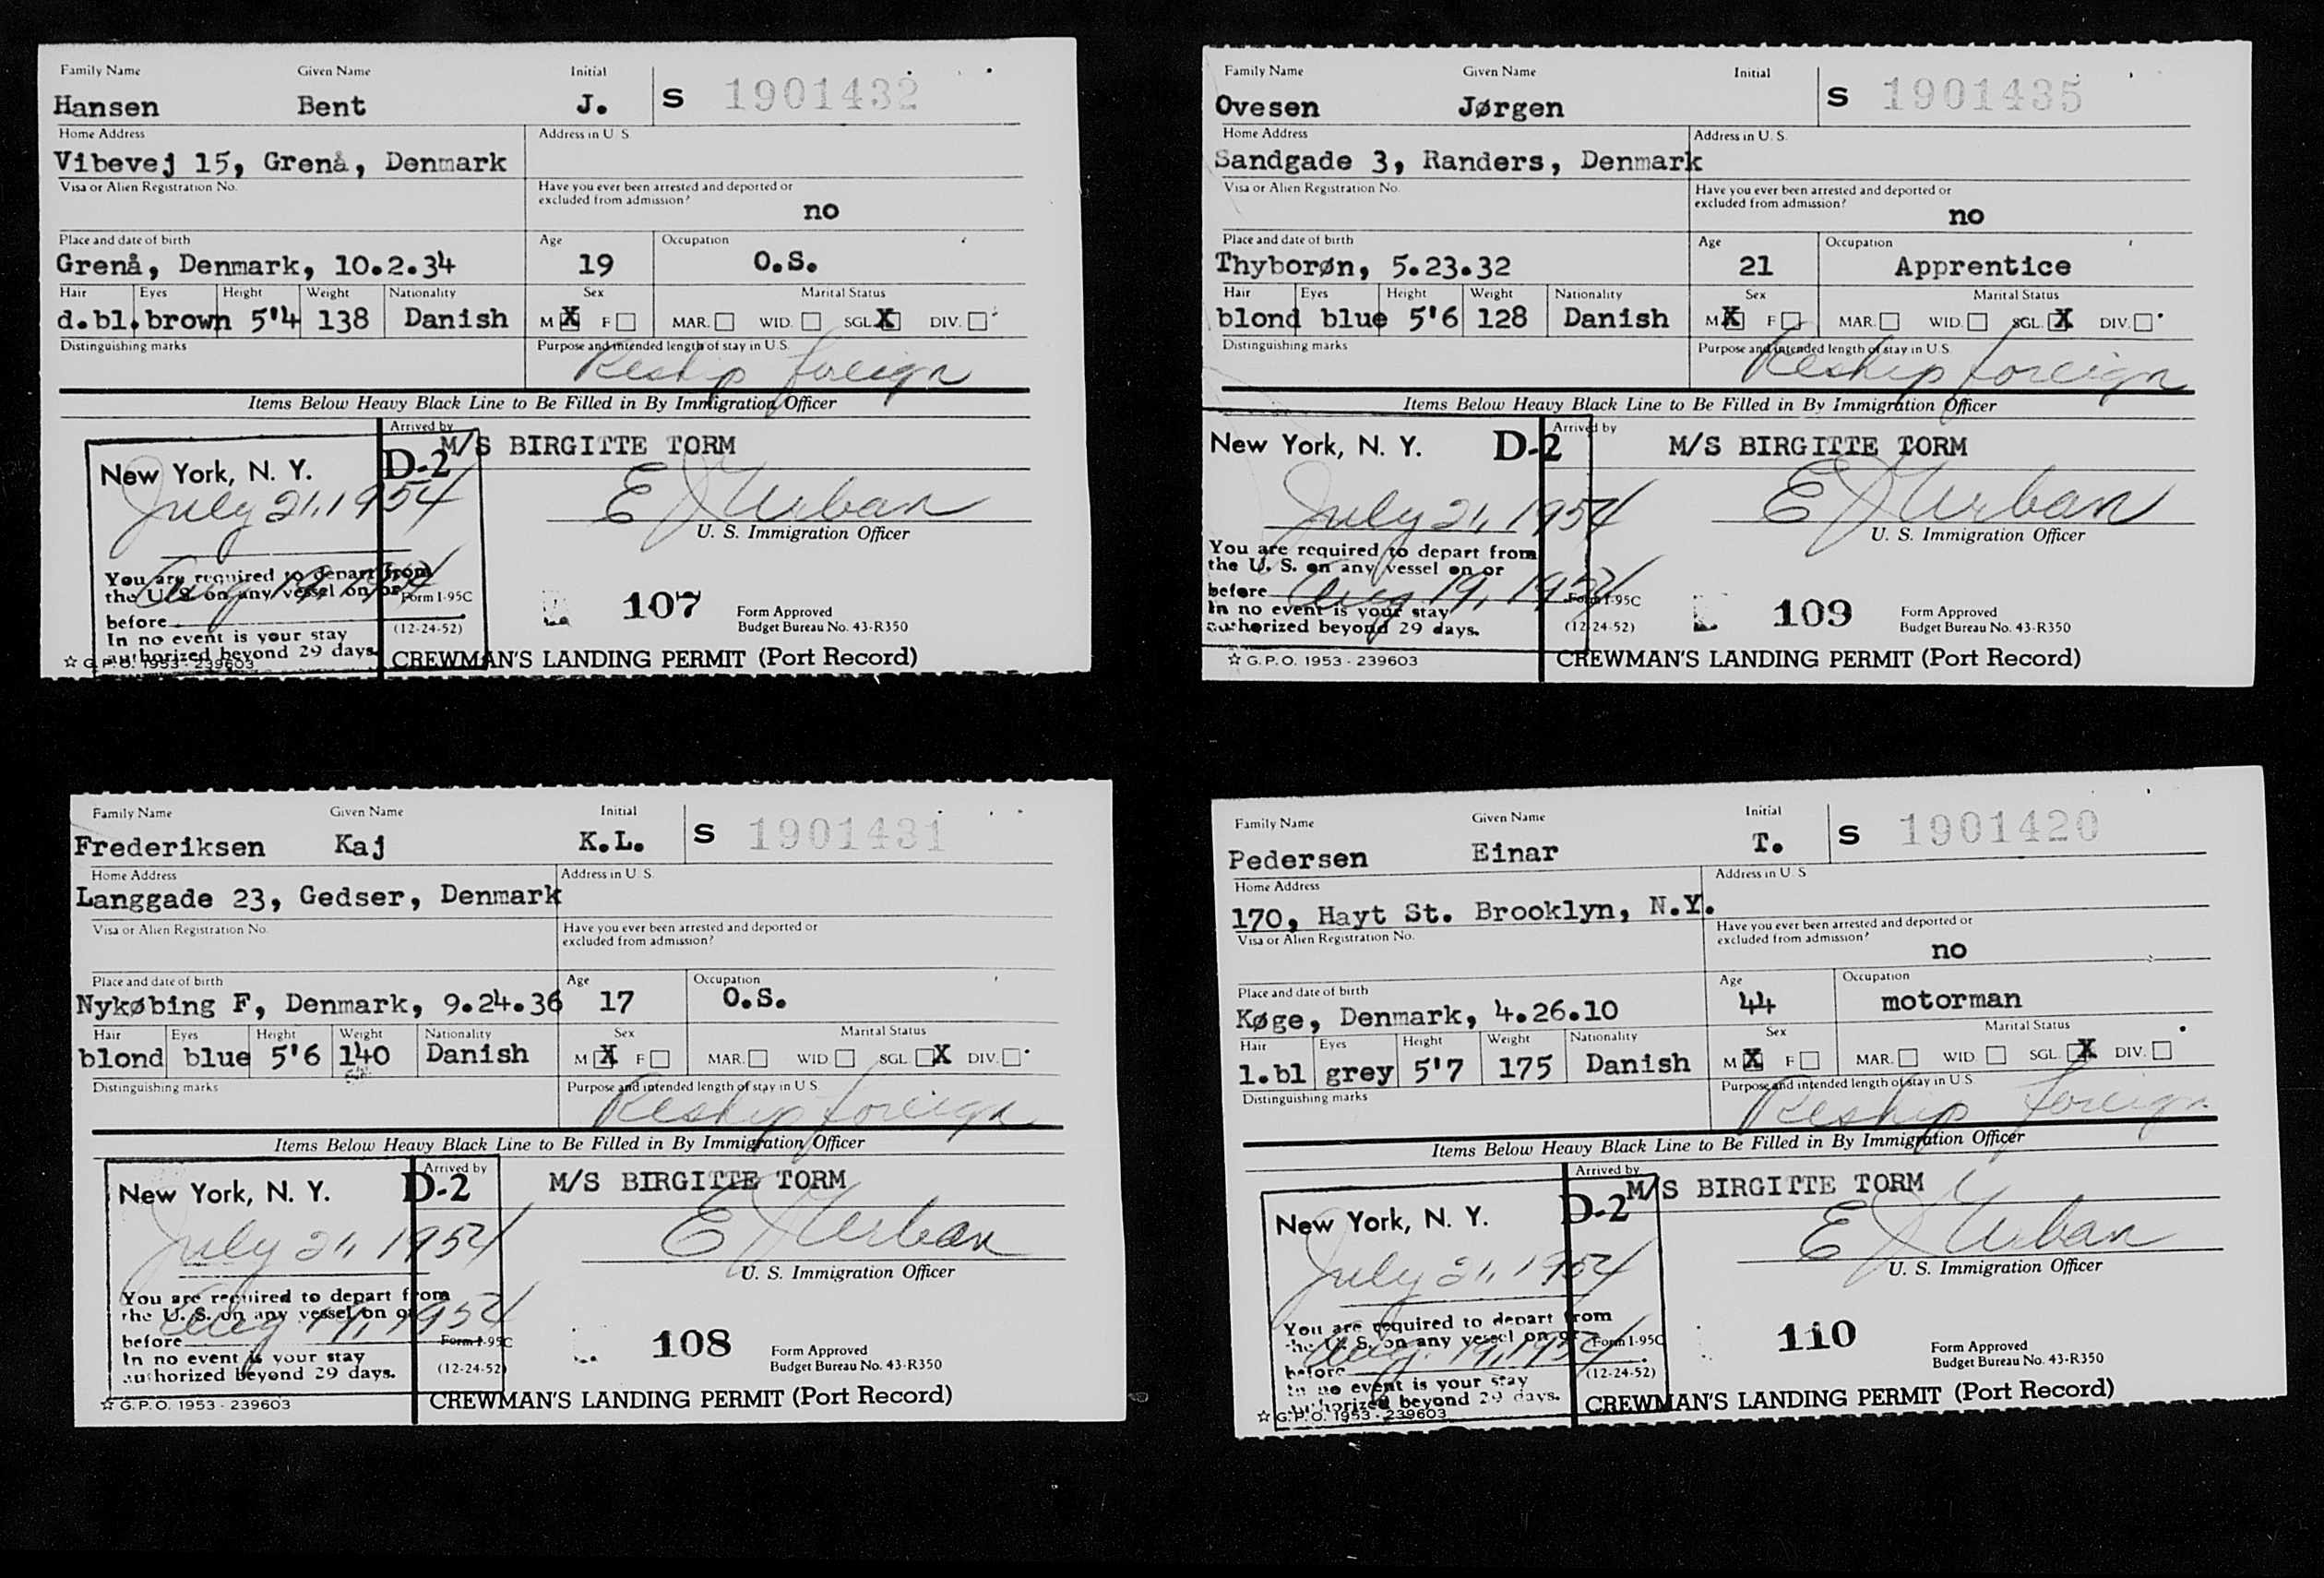 Family Name Given Name Initial
Hansen Bent J. S 1901432
Home Address Address in U. S.
Vibevej 15, Grenå, Denmark
Visa or Alien Registration No. Have you ever been arrested and deported or
excluded from admission?
no
Place and date of birth Age Occupation
Grenå, Denmark, 10.2.34 19 O.S.
Hair Eyes Height Weight Nationality Sex Marital Status
d.bl. brown 5'4 138 Danish M X F MAR. WID. SGL. X DIV.
Distinguishing marks Purpose and intended length of stay in U.S.
Reship foreign
Items Below Heavy Black Line to Be Filled in By Immigration Officer
Arrived by
M/S BIRGITTE TORM
New York, N. Y. D-2
July 21, 1954 E J Urban
U. S. Immigration Officer
You are required to depart from
the U. S. on any vessel on or
before Aug 19, 1954
In no event is your stay
authorized beyond 29 days.
Form I-95C
(12-24-52)
107 Form Approved
Budget Bureau No. 43-R350
☆ G.P.O. 1953 - 239603 CREWMAN'S LANDING PERMIT (Port Record)
Family Name Given Name Initial
Ovesen Jørgen S 1901435
Home Address Address in U. S.
Sandgade 3, Randers, Denmark
Visa or Alien Registration No. Have you ever been arrested and deported or
excluded from admission?
no
Place and date of birth Age Occupation
Thyborøn, 5.23.32 21 Apprentice
Hair Eyes Height Weight Nationality Sex Marital Status
blond blue 5'6 128 Danish M X F MAR. WID. SGL. X DIV.
Distinguishing marks Purpose and intended length of stay in U.S.
Reship foreign
Items Below Heavy Black Line to Be Filled in By Immigration Officer
Arrived by
New York, N. Y. D-2 M/S BIRGITTE TORM
July 21, 1954 E J Urban
U. S. Immigration Officer
You are required to depart from
the U. S. on any vessel on or
before Aug 19, 1954
In no event is your stay
authorized beyond 29 days.
Form I-95C
(12-24-52)
109 Form Approved
Budget Bureau No. 43-R350
☆ G.P.O. 1953 - 239603 CREWMAN'S LANDING PERMIT (Port Record)
Family Name Given Name Initial
Frederiksen Kaj K.L. S 1901431
Home Address Address in U. S.
Langgade 23, Gedser, Denmark
Visa or Alien Registration No. Have you ever been arrested and deported or
excluded from admission?
Place and date of birth Age Occupation
Nykøbing F, Denmark, 9.24.36 17 O.S.
Hair Eyes Height Weight Nationality Sex Marital Status
blond blue 5'6 140 Danish M X F MAR. WID SGL X DIV.
Distinguishing marks Purpose and intended length of stay in U.S.
Reship foreign
Items Below Heavy Black Line to Be Filled in By Immigration Officer
Arrived by
New York, N. Y. D-2 M/S BIRGITTE TORM
July 21, 1954 E J Urban
U. S. Immigration Officer
You are required to depart from
the U. S. on any vessel on or
before Aug 19, 1954
In no event is your stay
authorized beyond 29 days.
Form I-95C
(12-24-52)
108 Form Approved
Budget Bureau No. 43-R350
☆ G.P.O. 1953 - 239603 CREWMAN'S LANDING PERMIT (Port Record)
Family Name Given Name Initial
Pedersen Einar T. S 1901420
Home Address Address in U. S
170, Hayt St. Brooklyn, N.Y.
Visa or Alien Registration No. Have you ever been arrested and deported or
excluded from admission?
no
Place and date of birth Age Occupation
Køge, Denmark, 4.26.10 44 motorman
Hair Eyes Height Weight Nationality Sex Marital Status
l.bl grey 5'7 175 Danish M X F MAR. WID. SGL. X DIV.
Distinguishing marks Purpose and intended length of stay in U.S.
Reship foreign
Items Below Heavy Black Line to Be Filled in By Immigration Officer
Arrived by
M/S BIRGITTE TORM
New York, N. Y. D-2
July 21, 1954 E J Urban
U. S. Immigration Officer
You are required to depart from
the U. S. on any vessel on or
before Aug. 19, 1954
In no event is your stay
authorized beyond 29 days.
Form I-95C
(12-24-52)
110 Form Approved
Budget Bureau No. 43-R350
☆ G.P.O. 1953 - 239603 CREWMAN'S LANDING PERMIT (Port Record)